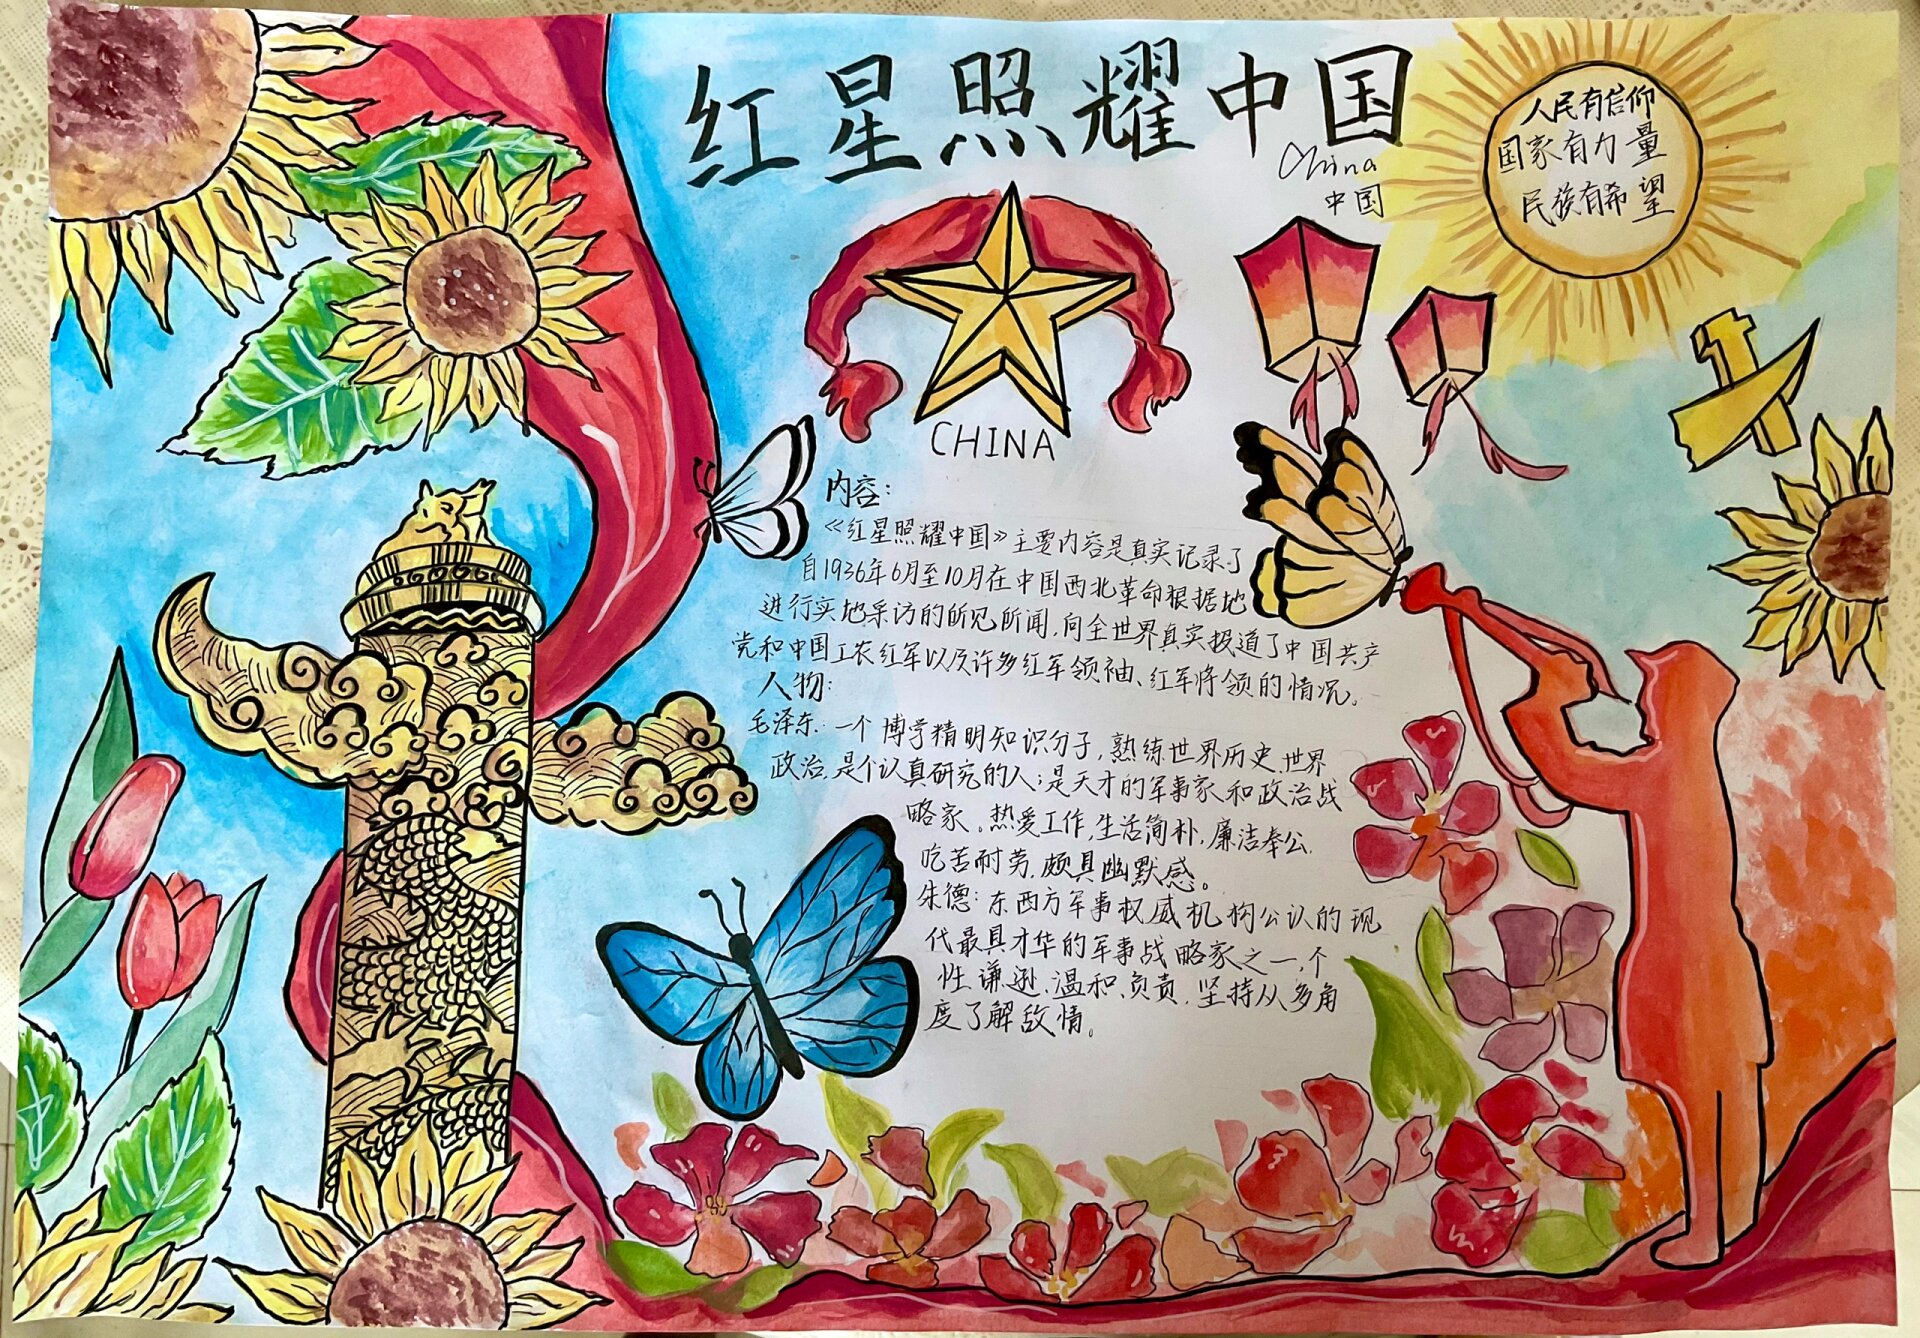 红星照耀中国
China
中国
人民有信仰
国家有力量
民族有希望
CHINA
内容:
《红星照耀中国》主要内容是真实记录了
自1936年6月至10月在中国西北革命根据地
进行实地采访的所见所闻,向全世界真实报道了中国共产
党和中国工农红军以及许多红军领袖、红军将领的情况。
人物:
毛泽东:一个博学精明知识分子,熟练世界历史、世界
政治,是个认真研究的人;是天才的军事家和政治战
略家。热爱工作,生活简朴,廉洁奉公,
吃苦耐劳,颇具幽默感。
朱德:东西方军事权威机构公认的现
代最具才华的军事战略家之一,个
性谦逊、温和、负责,坚持从多角
度了解敌情。